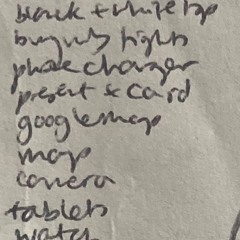 black + white top
burgundy tights
phone charger
present & card
google map
map
camera
tablets
watch